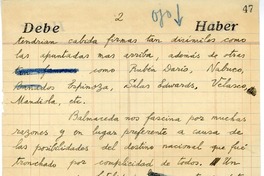 2
47
Debe Haber
tendrían cabida firmas tan disímiles como
las apuntadas mas arriba, además de otras
como Rubén Darío, Nabuco,
Espinoza, Edwards, Velasco,
Mandiola, etc.
Balmaceda nos fascina por muchas
razones y en lugar preferente a causa de
las posibilidades del destino nacional que fué
tronchado por complicidad de todos. Un